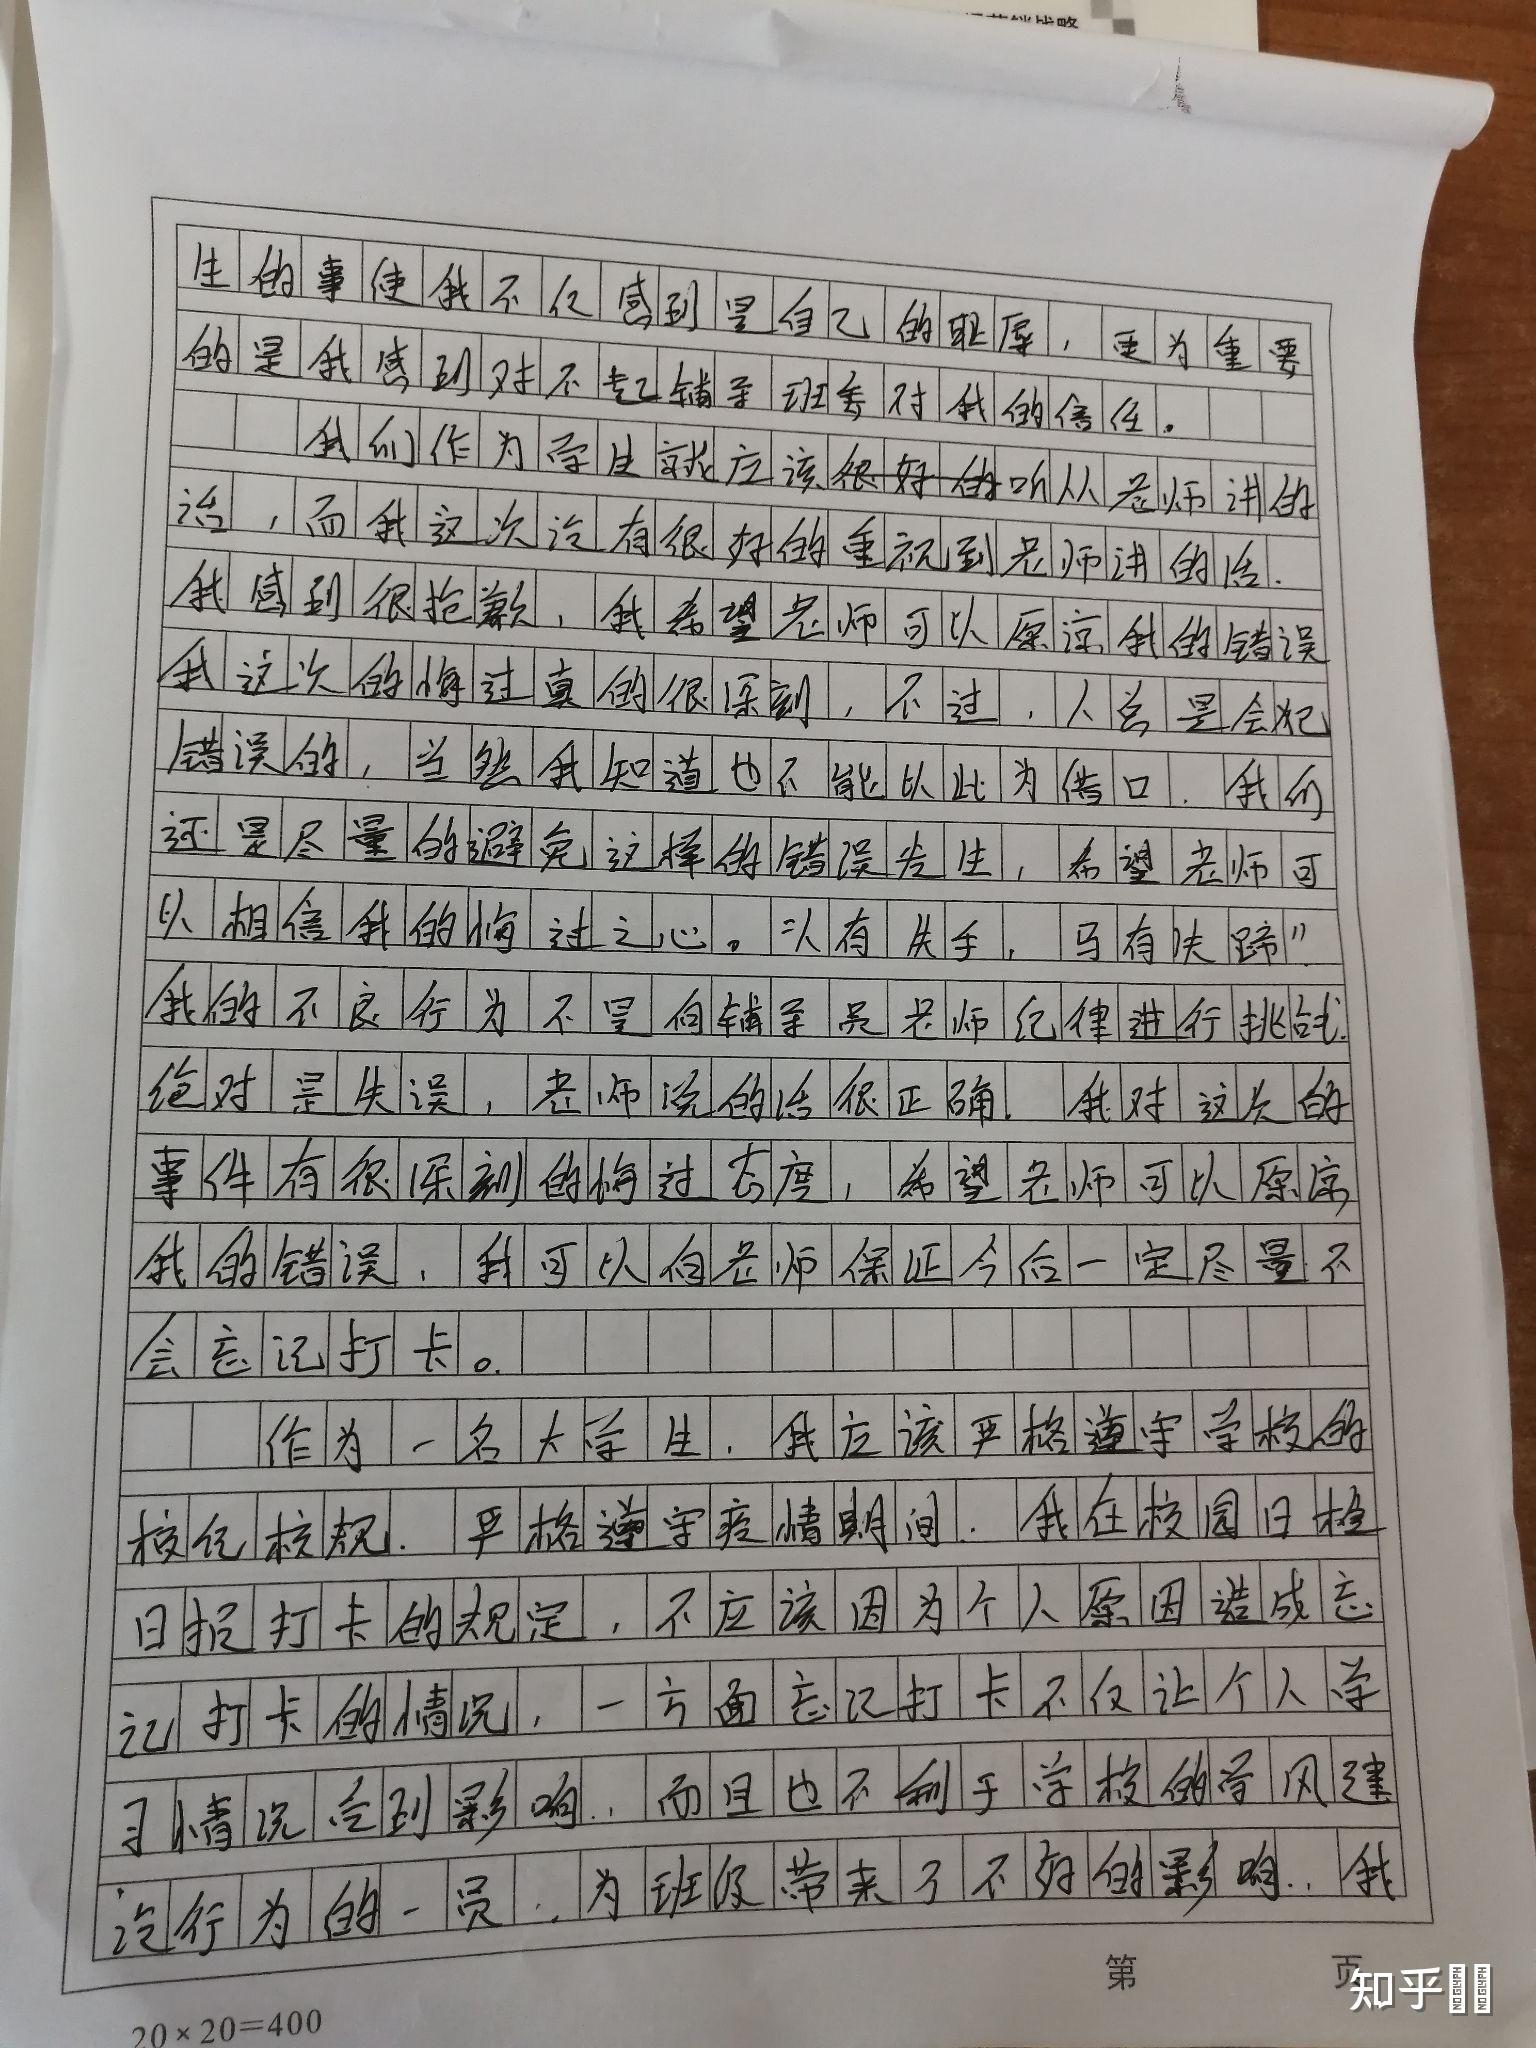 生的事使我不仅感到是自己的耻辱，更为重要
的是我感到对不起辅导班委对我的信任。
我们作为学生就应该很好的听从老师讲的
话，而我这次没有很好的重视到老师讲的话.
我感到很抱歉，我希望老师可以原谅我的错误
我这次的悔过真的很深刻，不过，人总是会犯
错误的，当然我知道也不能以此为借口.我们
还是尽量的避免这样的错误发生，希望老师可
以相信我的悔过之心。"人有失手，马有失蹄"
我的不良行为不是向辅导员老师纪律进行挑战.
绝对是失误，老师说的话很正确.我对这次的
事件有很深刻的悔过态度，希望老师可以原谅
我的错误，我可以向老师保证今后一定尽量不
会忘记打卡。
作为一名大学生.我应该严格遵守学校的
校纪校规.严格遵守疫情期间.我在校园日检
日报打卡的规定，不应该因为个人原因造成忘
记打卡的情况，一方面忘记打卡不仅让个人学
习情况受到影响..而且也不利于学校的学风建
设行为的一员..为班级带来了不好的影响..我
第 页
20×20=400
知乎